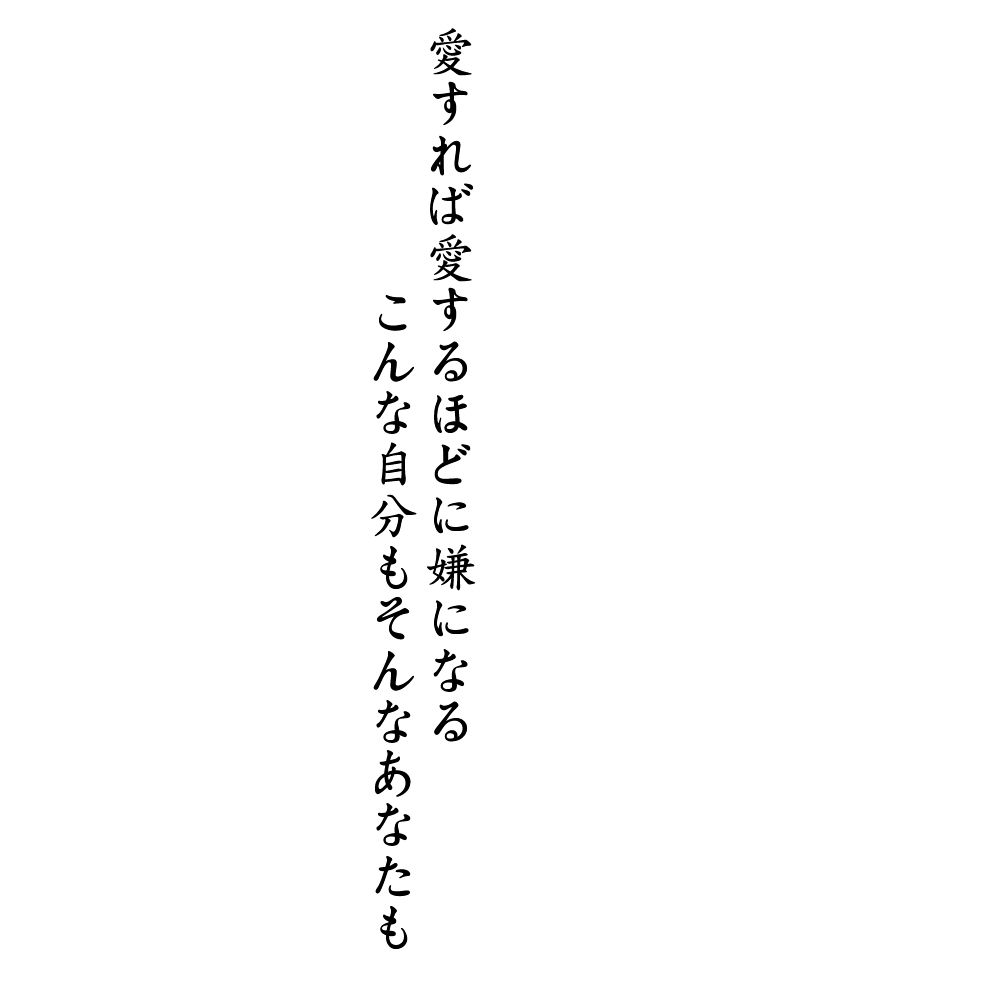 愛すれば愛するほどに嫌になる
こんな自分もそんなあなたも